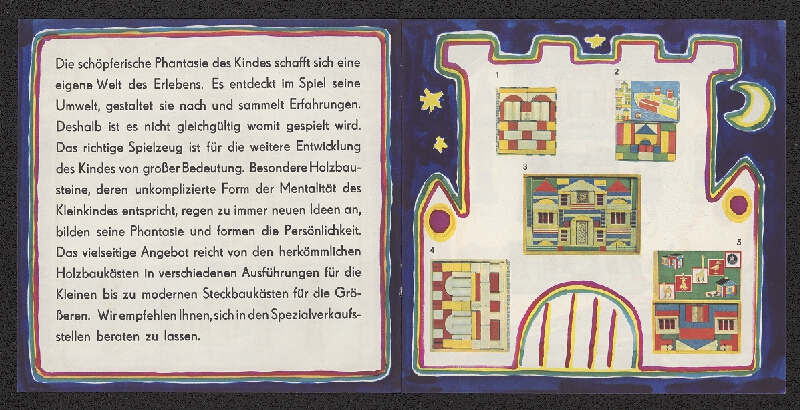 Die schöpferische Phantasie des Kindes schafft sich eine
eigene Welt des Erlebens. Es entdeckt im Spiel seine
Umwelt, gestaltet sie nach und sammelt Erfahrungen.
Deshalb ist es nicht gleichgültig womit gespielt wird.
Das richtige Spielzeug ist für die weitere Entwicklung
des Kindes von großer Bedeutung. Besondere Holzbau-
steine, deren unkomplizierte Form der Mentalität des
Kleinkindes entspricht, regen zu immer neuen Ideen an,
bilden seine Phantasie und formen die Persönlichkeit.
Das vielseitige Angebot reicht von den herkömmlichen
Holzbaukästen in verschiedenen Ausführungen für die
Kleinen bis zu modernen Steckbaukästen für die Grö-
ßeren. Wir empfehlen Ihnen, sich in den Spezialverkaufs-
stellen beraten zu lassen.
1
2
3
4
5